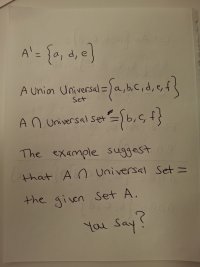 A' = {a, d, e}
A Union Universal Set = {a, b, c, d, e, f}
A ∩ Universal Set = {b, c, f}
The example suggest
that A ∩ Universal Set =
the given Set A.
You Say?